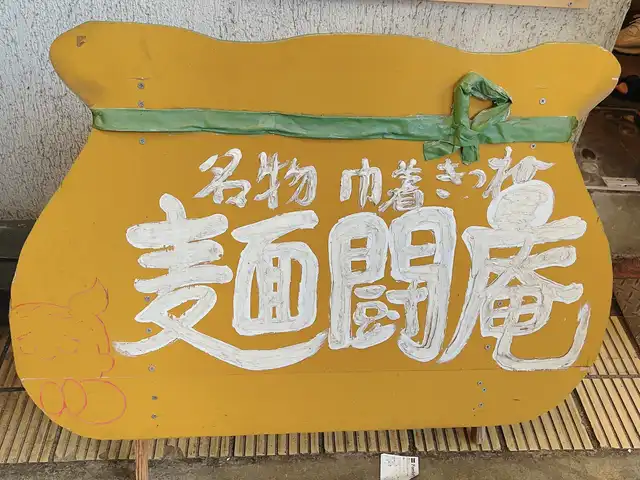 名物 巾着きつね
麺闘庵